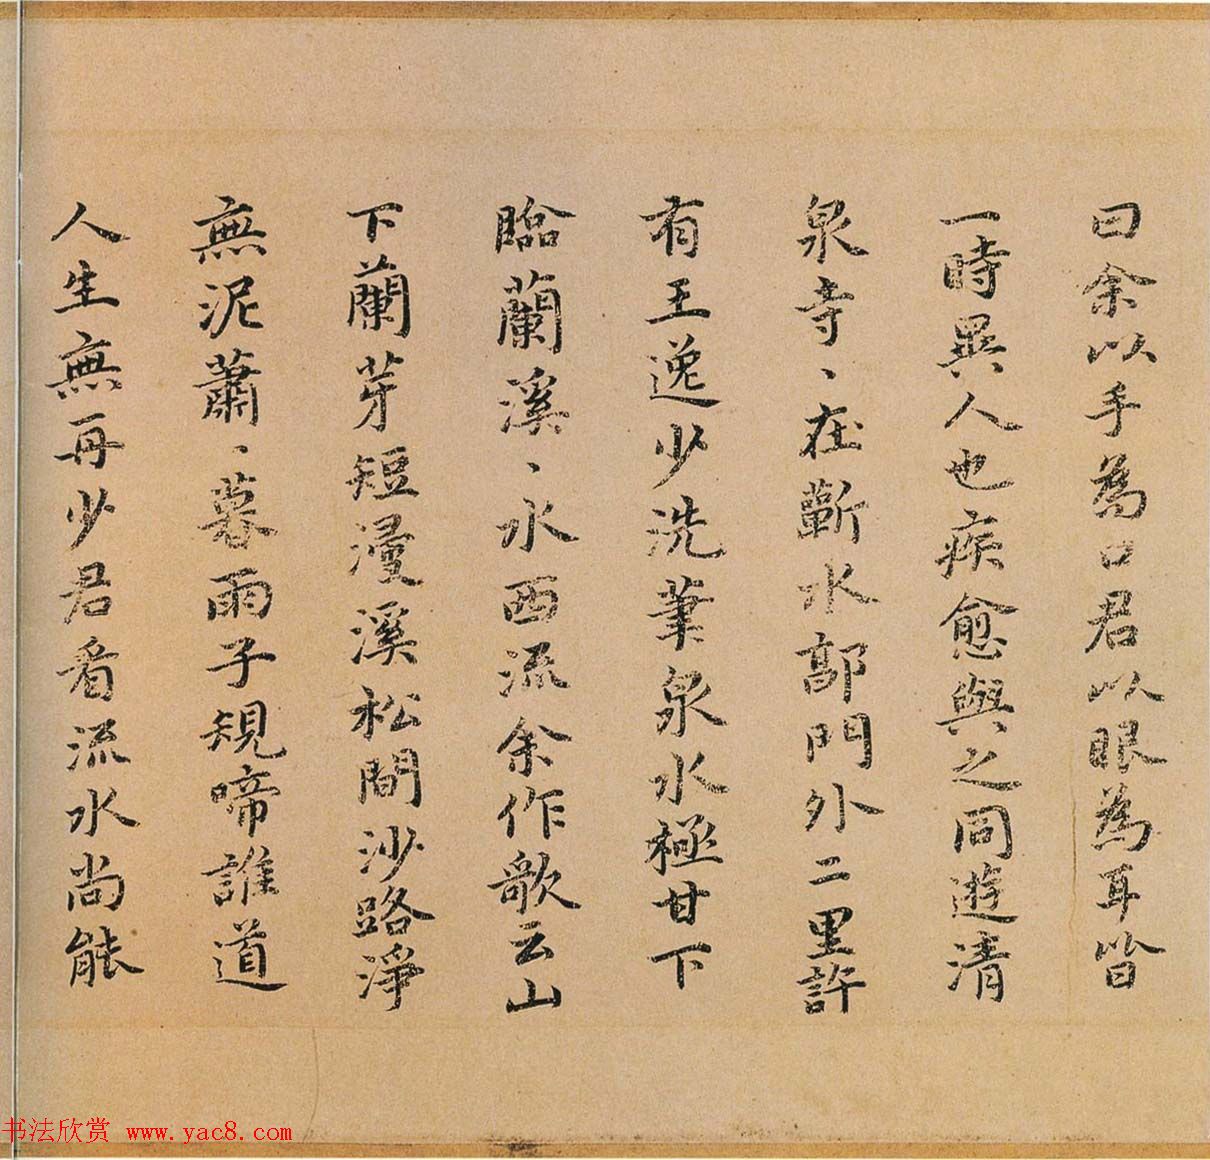 曰余以手為口君以眼為耳皆
一時異人也疾愈與之同遊清
泉寺、在蘄水郭門外二里許
有王逸少洗筆泉水極甘下
臨蘭溪、水西流余作歌云山
下蘭芽短漫溪松間沙路淨
無泥蕭、暮雨子規啼誰道
人生無再少君看流水尚能
书法欣赏 www.yac8.com